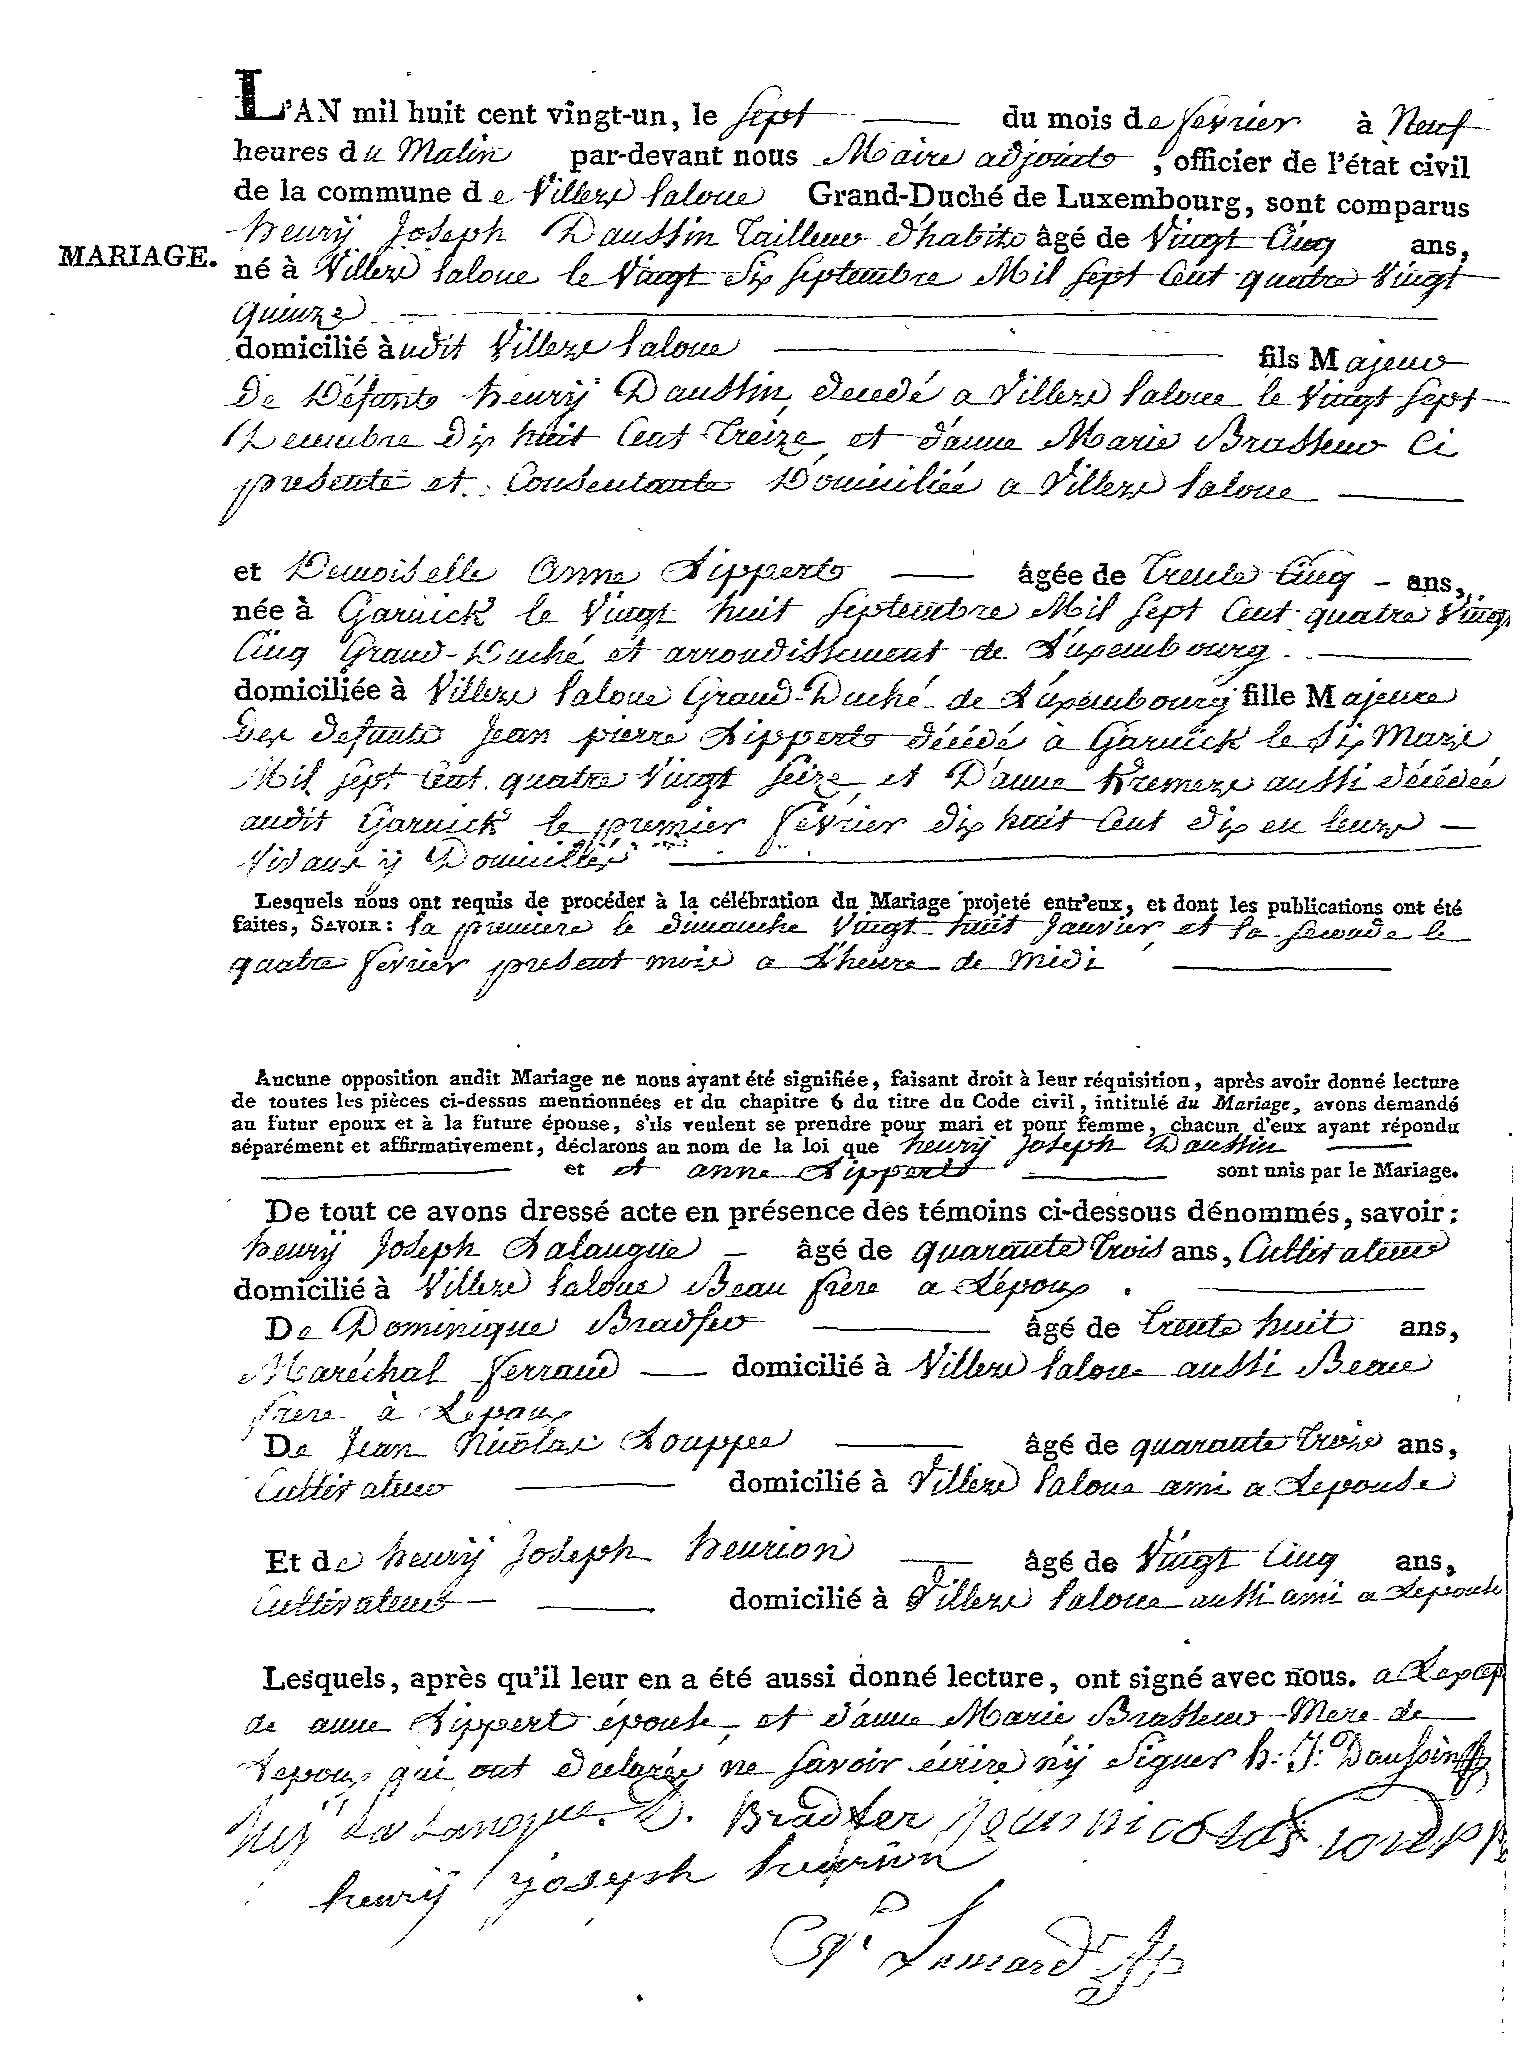 L'AN mil huit cent vingt-un, le sept du mois de fevrier à Neuf
heures du Matin par-devant nous Maire adjoint, officier de l'état civil
de la commune de Villers laloue Grand-Duché de Luxembourg, sont comparus
henrÿ Joseph Daussin Tailleur d'habits âgé de Vingt Cinq ans,
MARIAGE.
né à Villers laloue le Vingt Six Septembre Mil sept Cent quatre Vingt
quinze
domicilié à udit Villers laloue fils Majeur
De Défunt henrÿ Daussin, decedé a Villers laloue le Vingt sept
Decembre dix huit Cent Treize, et d'anne Marie Brasseur Ci
presente et Consentante Domiciliée a Villers laloue
et Demoiselle Anne Lippert âgée de Trente Cinq ans,
née à Garnick le Vingt huit Septembre Mil sept Cent quatre Vingt
Cinq Grand-Duché et arrondissement de Luxembourg
domiciliée à Villers laloue Grand-Duché de Luxembourg fille Majeure
Des defunts Jean pierre Lippert décédé à Garnick le Six Mars
Mil sept Cent quatre Vingt Seize, et D'anne Kremers aussi décédée
audit Garnick le premier fevrier dix huit Cent dix en leurs
Vivans ÿ Domiciliés
Lesquels nous ont requis de procéder à la célébration du Mariage projeté entr'eux, et dont les publications ont été
faites, SAVOIR: la premiere le dimanche Vingt huit Janvier, et la seconde le
quatre fevrier present mois a L'heure de midi
Aucune opposition audit Mariage ne nous ayant été signifiée, faisant droit à leur réquisition, après avoir donné lecture
de toutes les pièces ci-dessus mentionnées et du chapitre 6 du titre du Code civil, intitulé du Mariage, avons demandé
au futur epoux et à la future épouse, s'ils veulent se prendre pour mari et pour femme, chacun d'eux ayant répondu
séparément et affirmativement, déclarons au nom de la loi que henrÿ Joseph Daussin
et et anne Lippert sont unis par le Mariage.
De tout ce avons dressé acte en présence des témoins ci-dessous dénommés, savoir:
henrÿ Joseph Lalangue âgé de quarante Trois ans, Cultivateur
domicilié à Villers laloue Beau frere a Lépoux.
De Dominique Bradfer âgé de Trente huit ans,
Maréchal ferrand domicilié à Villers laloue aussi Beau
frere à Lepoux
De Jean Nicolas Louppe âgé de quarante Trois ans,
Cultivateur domicilié à Villers laloue ami a Lepouse
Et de henrÿ Joseph henrion âgé de Vingt Cinq ans,
Cultivateur domicilié à Villers laloue aussi ami a Lepouse
Lesquels, après qu'il leur en a été aussi donné lecture, ont signé avec nous. a Lexcep
de anne Lippert épouse, et d'anne Marie Brasseur Mere de
Lepoux qui ont declarée ne savoir écrire n'ÿ Signer h: J: Daussin
La Langue. D. Bradfer jean nicolas loupp
henrÿ joseph henrion